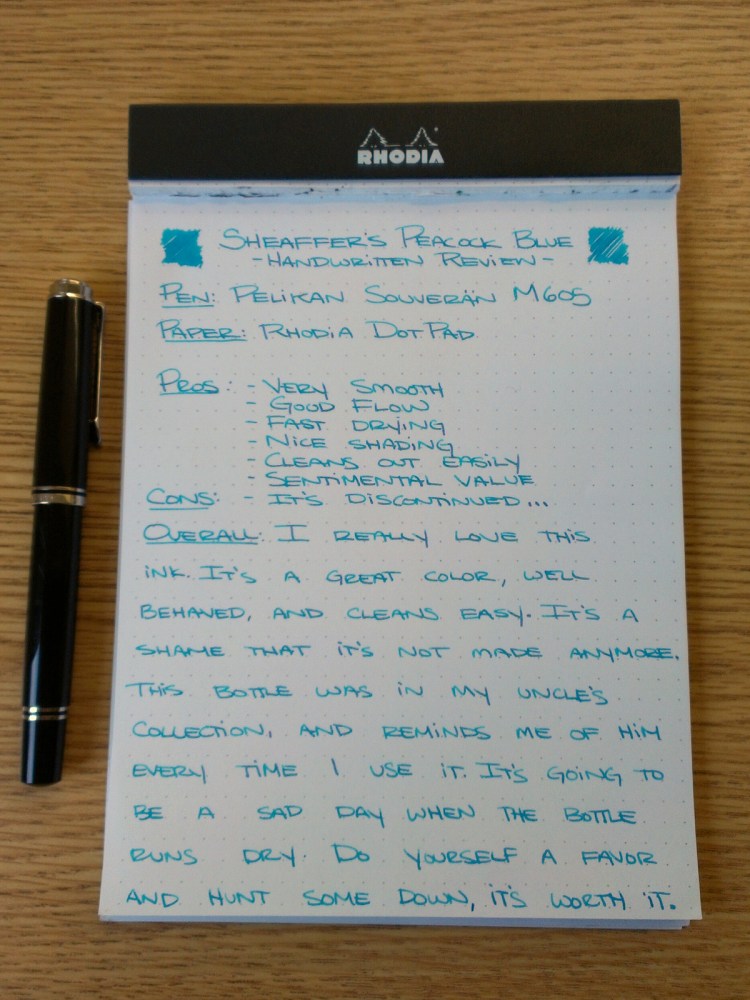 RHODIA
SHEAFFER'S PEACOCK BLUE
-HANDWRITTEN REVIEW-
PEN: PELIKAN SOUVERÄN M605
PAPER: RHODIA DOTPAD
PROS: - VERY SMOOTH
- GOOD FLOW
- FAST DRYING
- NICE SHADING
- CLEANS OUT EASILY
- SENTIMENTAL VALUE
CONS: - IT'S DISCONTINUED...
OVERALL: I REALLY LOVE THIS
INK. IT'S A GREAT COLOR, WELL
BEHAVED, AND CLEANS EASY. IT'S A
SHAME THAT IT'S NOT MADE ANYMORE.
THIS BOTTLE WAS IN MY UNCLE'S
COLLECTION, AND REMINDS ME OF HIM
EVERY TIME I USE IT. IT'S GOING TO
BE A SAD DAY WHEN THE BOTTLE
RUNS DRY. DO YOURSELF A FAVOR
AND HUNT SOME DOWN, IT'S WORTH IT.